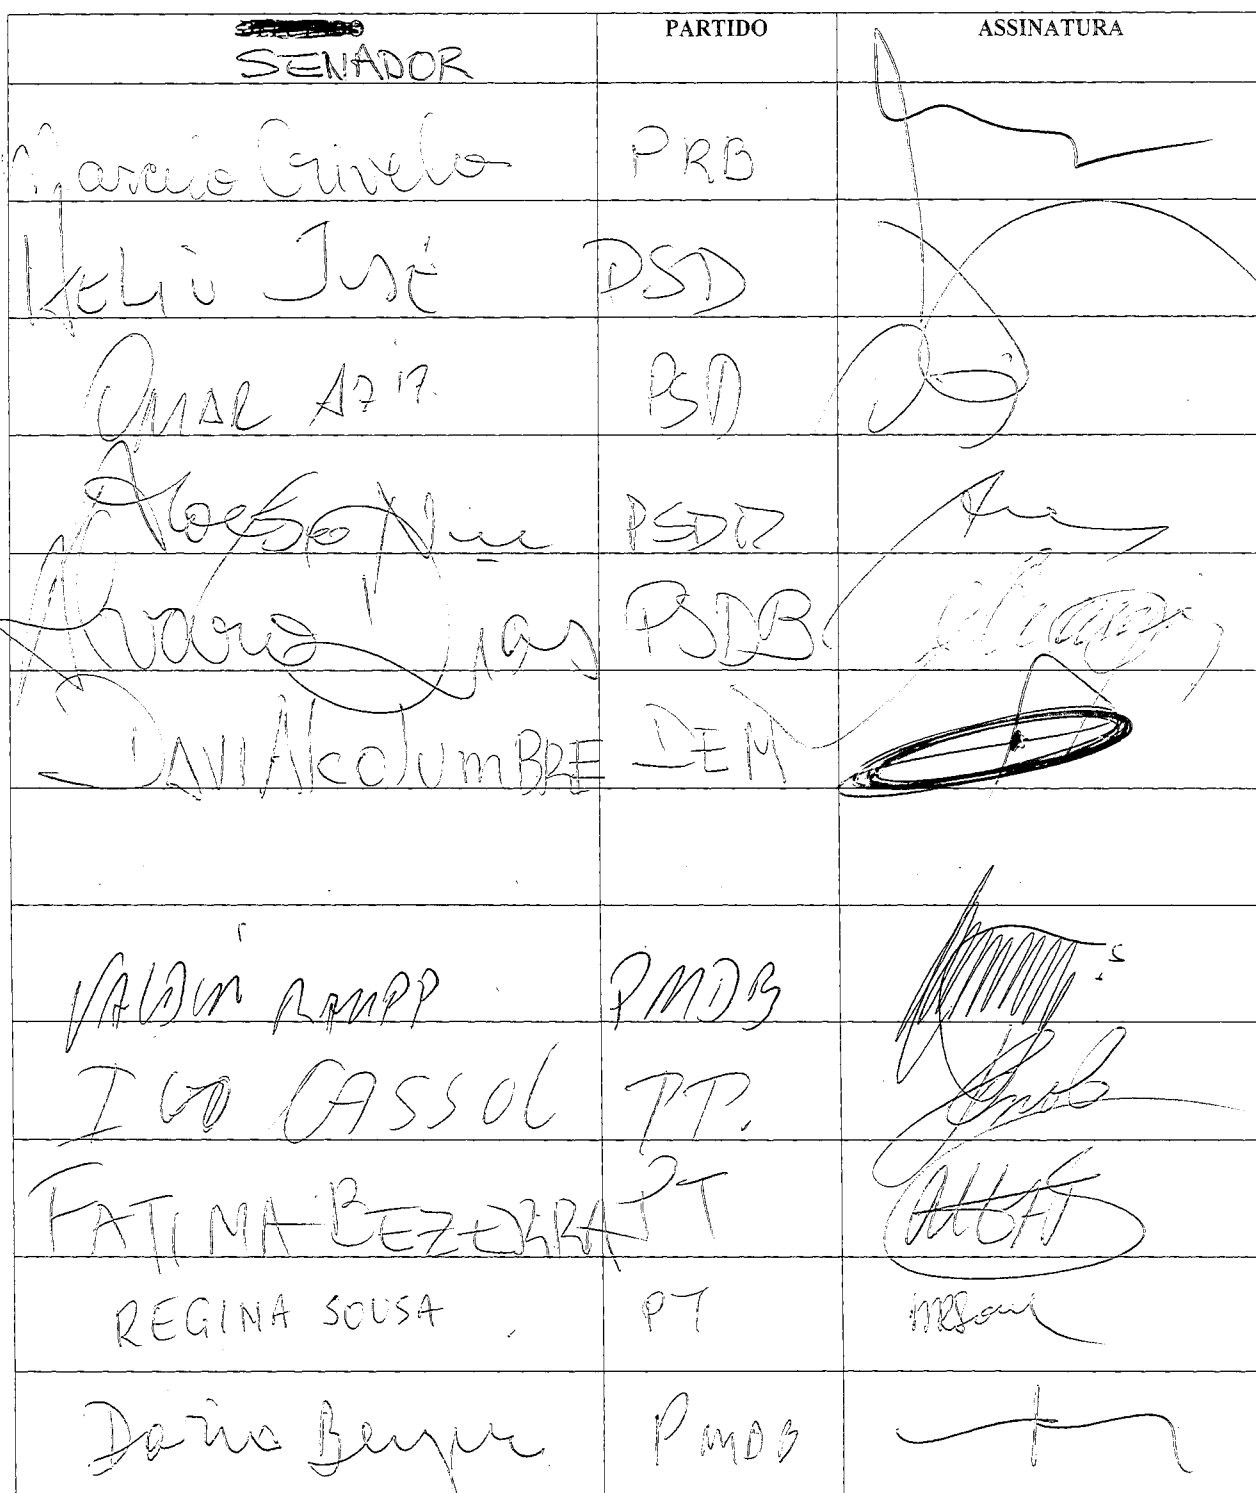 SENADOR PARTIDO ASSINATURA
Marcelo Crivella PRB
Helio José PSD
OMAR AZIZ. PSD
Aloysio Nun PSDB
Alvaro Dias PSDB
DAVI AlcolumBRE DEM
VALDIR RAUPP PMDB
IVO CASSOL PP.
FATIMA BEZERRA PT
REGINA SOUSA PT
Dário Berger PMDB